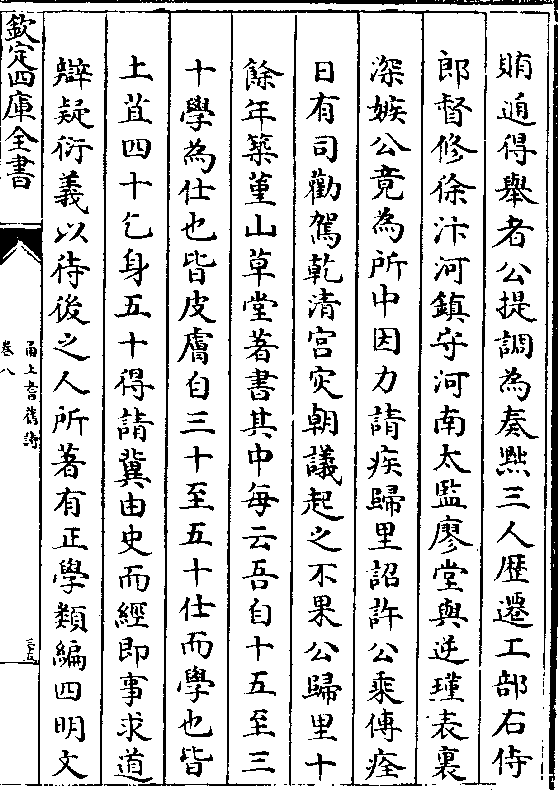 賄逭得舉者公提調為奏黜三人歴遷工部右侍
郎督修徐汴河鎮守河南太監廖堂與逆瑾表裏
深嫉公竟為所中因力請疾歸里詔許公乗傳痊
日有司勸駕乾清宫灾朝議起之不果公歸里十
餘年築菫山草堂著書其中每云吾自十五至三
十學為仕也皆皮膚自三十至五十仕而學也皆
土苴四十乞身五十得請冀由史而經即事求道
辯疑衍義以待後之人所著有正學類編四明文
欽定四庫全書
甬上耆舊詩
卷八
三五